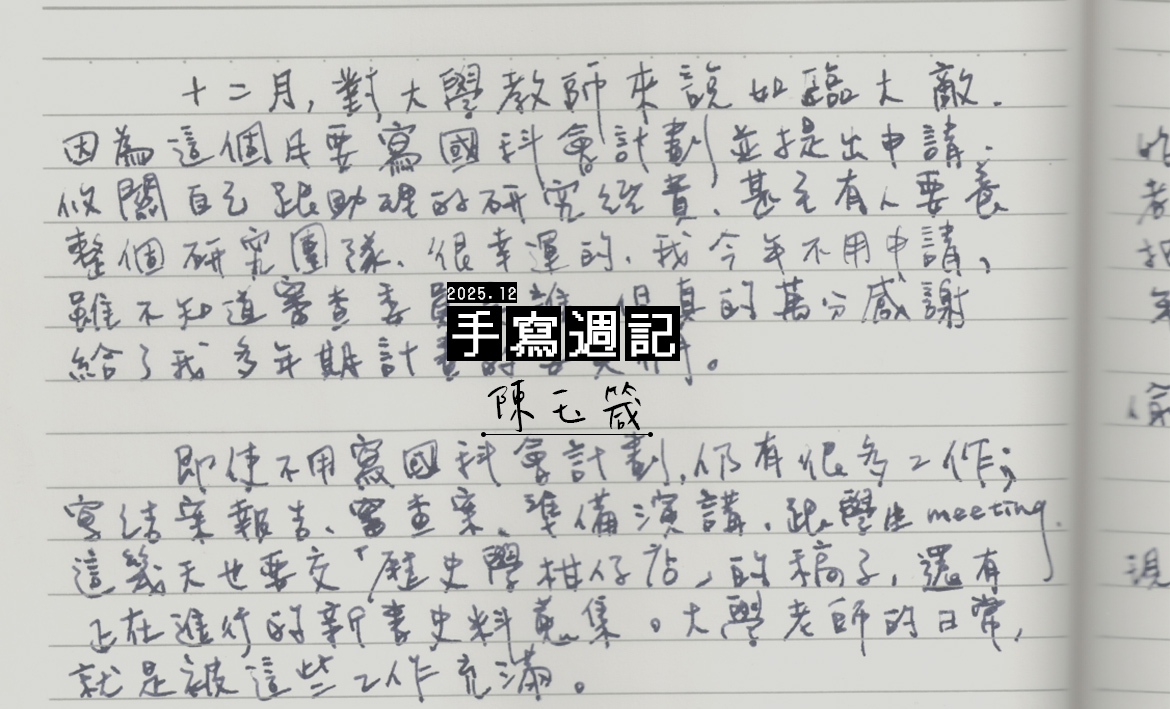 十二月,對大學教師來說如臨大敵.
因為這個月要寫國科會計劃並提出申請.
攸關自己跟助理的研究經費、甚至有人要養
整個研究團隊、很幸運的,我今年不用申請,
雖不知道審查委員 但真的萬分感謝
2025.12
手寫週記
給了我多年期計畫的 。
陳玉箴
即使不用寫國科會計劃,仍有很多工作;
寫結案報告、審查案、準備演講、跟學生meeting.
這幾天也要交「歷史學柑仔店」的稿子,還有
正在進行的新書史料蒐集。大學老師的日常,
就是被這些工作充滿。